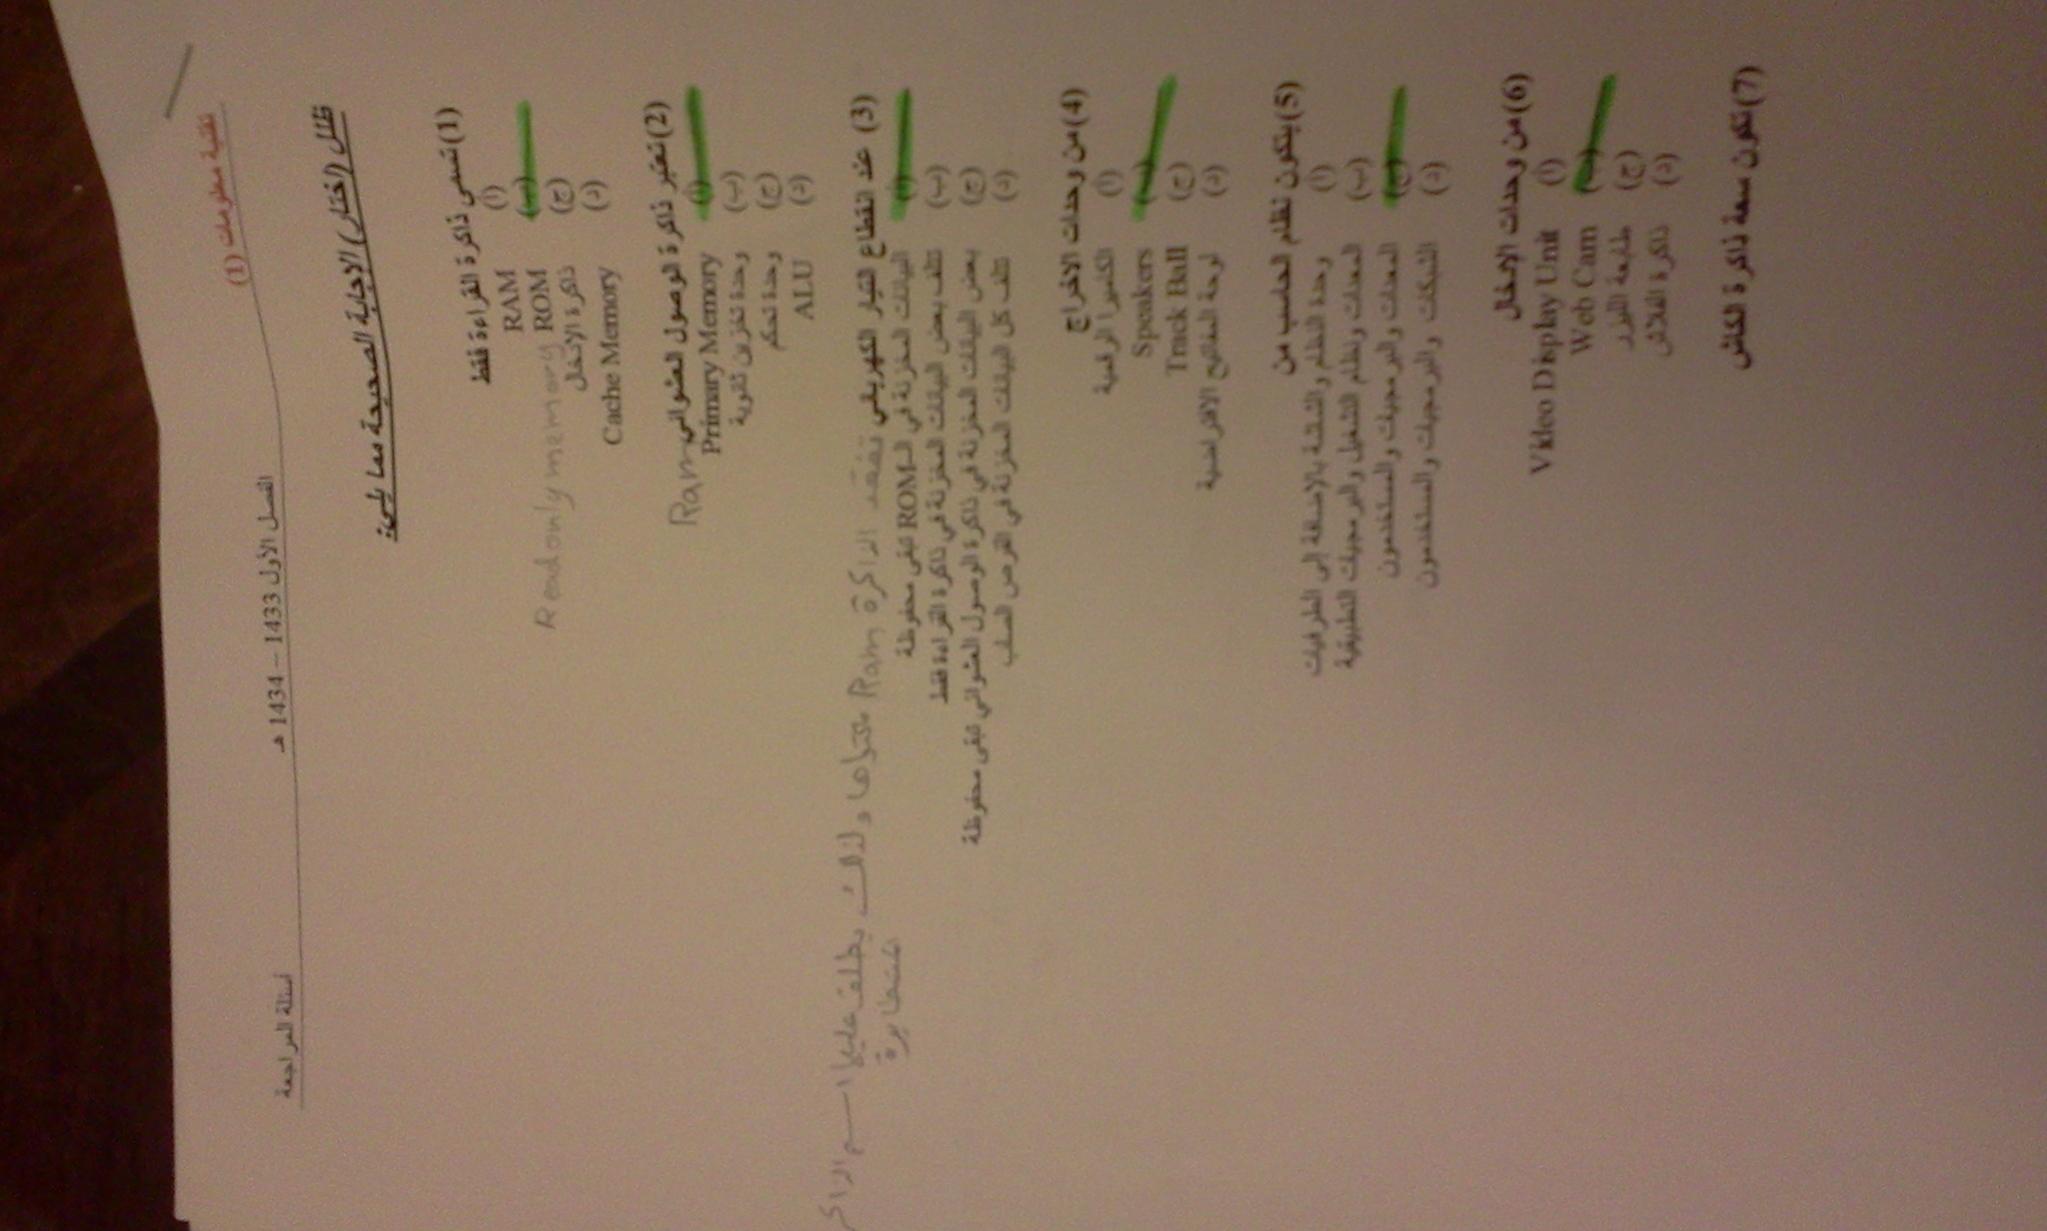 تقنية معلومات (1)
الفصل الأول 1433 – 1434 هـ
أسئلة المراجعة
ظلل (اختار) الاجابة الصحيحة مما يلي:
(1) تسمى ذاكرة القراءة فقط
(أ) RAM
(ب) ROM
Read only memory
(ج) ذاكرة الإدخال
(د) Cache Memory
(2) تعتبر ذاكرة الوصول العشوائي
Ram
(أ) Primary Memory
(ب) وحدة تخزين ثانوية
(ج) وحدة تحكم
(د) ALU
(3) عند انقطاع التيار الكهربائي
تفقد الذاكرة Ram محتواها ولذلك يطلق عليها اسم الذاكر
المتطايرة
(أ) البيانات المخزنة في الـROM تبقى محفوظة
(ب) تتلف بعض البيانات المخزنة في ذاكرة القراءة فقط
(ج) بعض البيانات المخزنة في ذاكرة الوصول العشوائي تبقى محفوظة
(د) تتلف كل البيانات المخزنة في القرص الصلب
(4) من وحدات الاخراج
(أ) الكاميرا الرقمية
(ب) Speakers
(ج) Track Ball
(د) لوحة المفاتيح الافتراضية
(5) يتكون نظام الحاسب من
(أ) وحدة النظام والشاشة بالإضافة إلى الطرفيات
(ب) المعدات ونظام التشغيل والبرمجيات التطبيقية
(ج) المعدات والبرمجيات والمستخدمون
(د) الشبكات والبرمجيات والمستخدمون
(6) من وحدات الإدخال
(أ) Video Display Unit
(ب) Web Cam
(ج) طابعة الليزر
(د) ذاكرة الفلاش
(7) تكون سعة ذاكرة الكاش